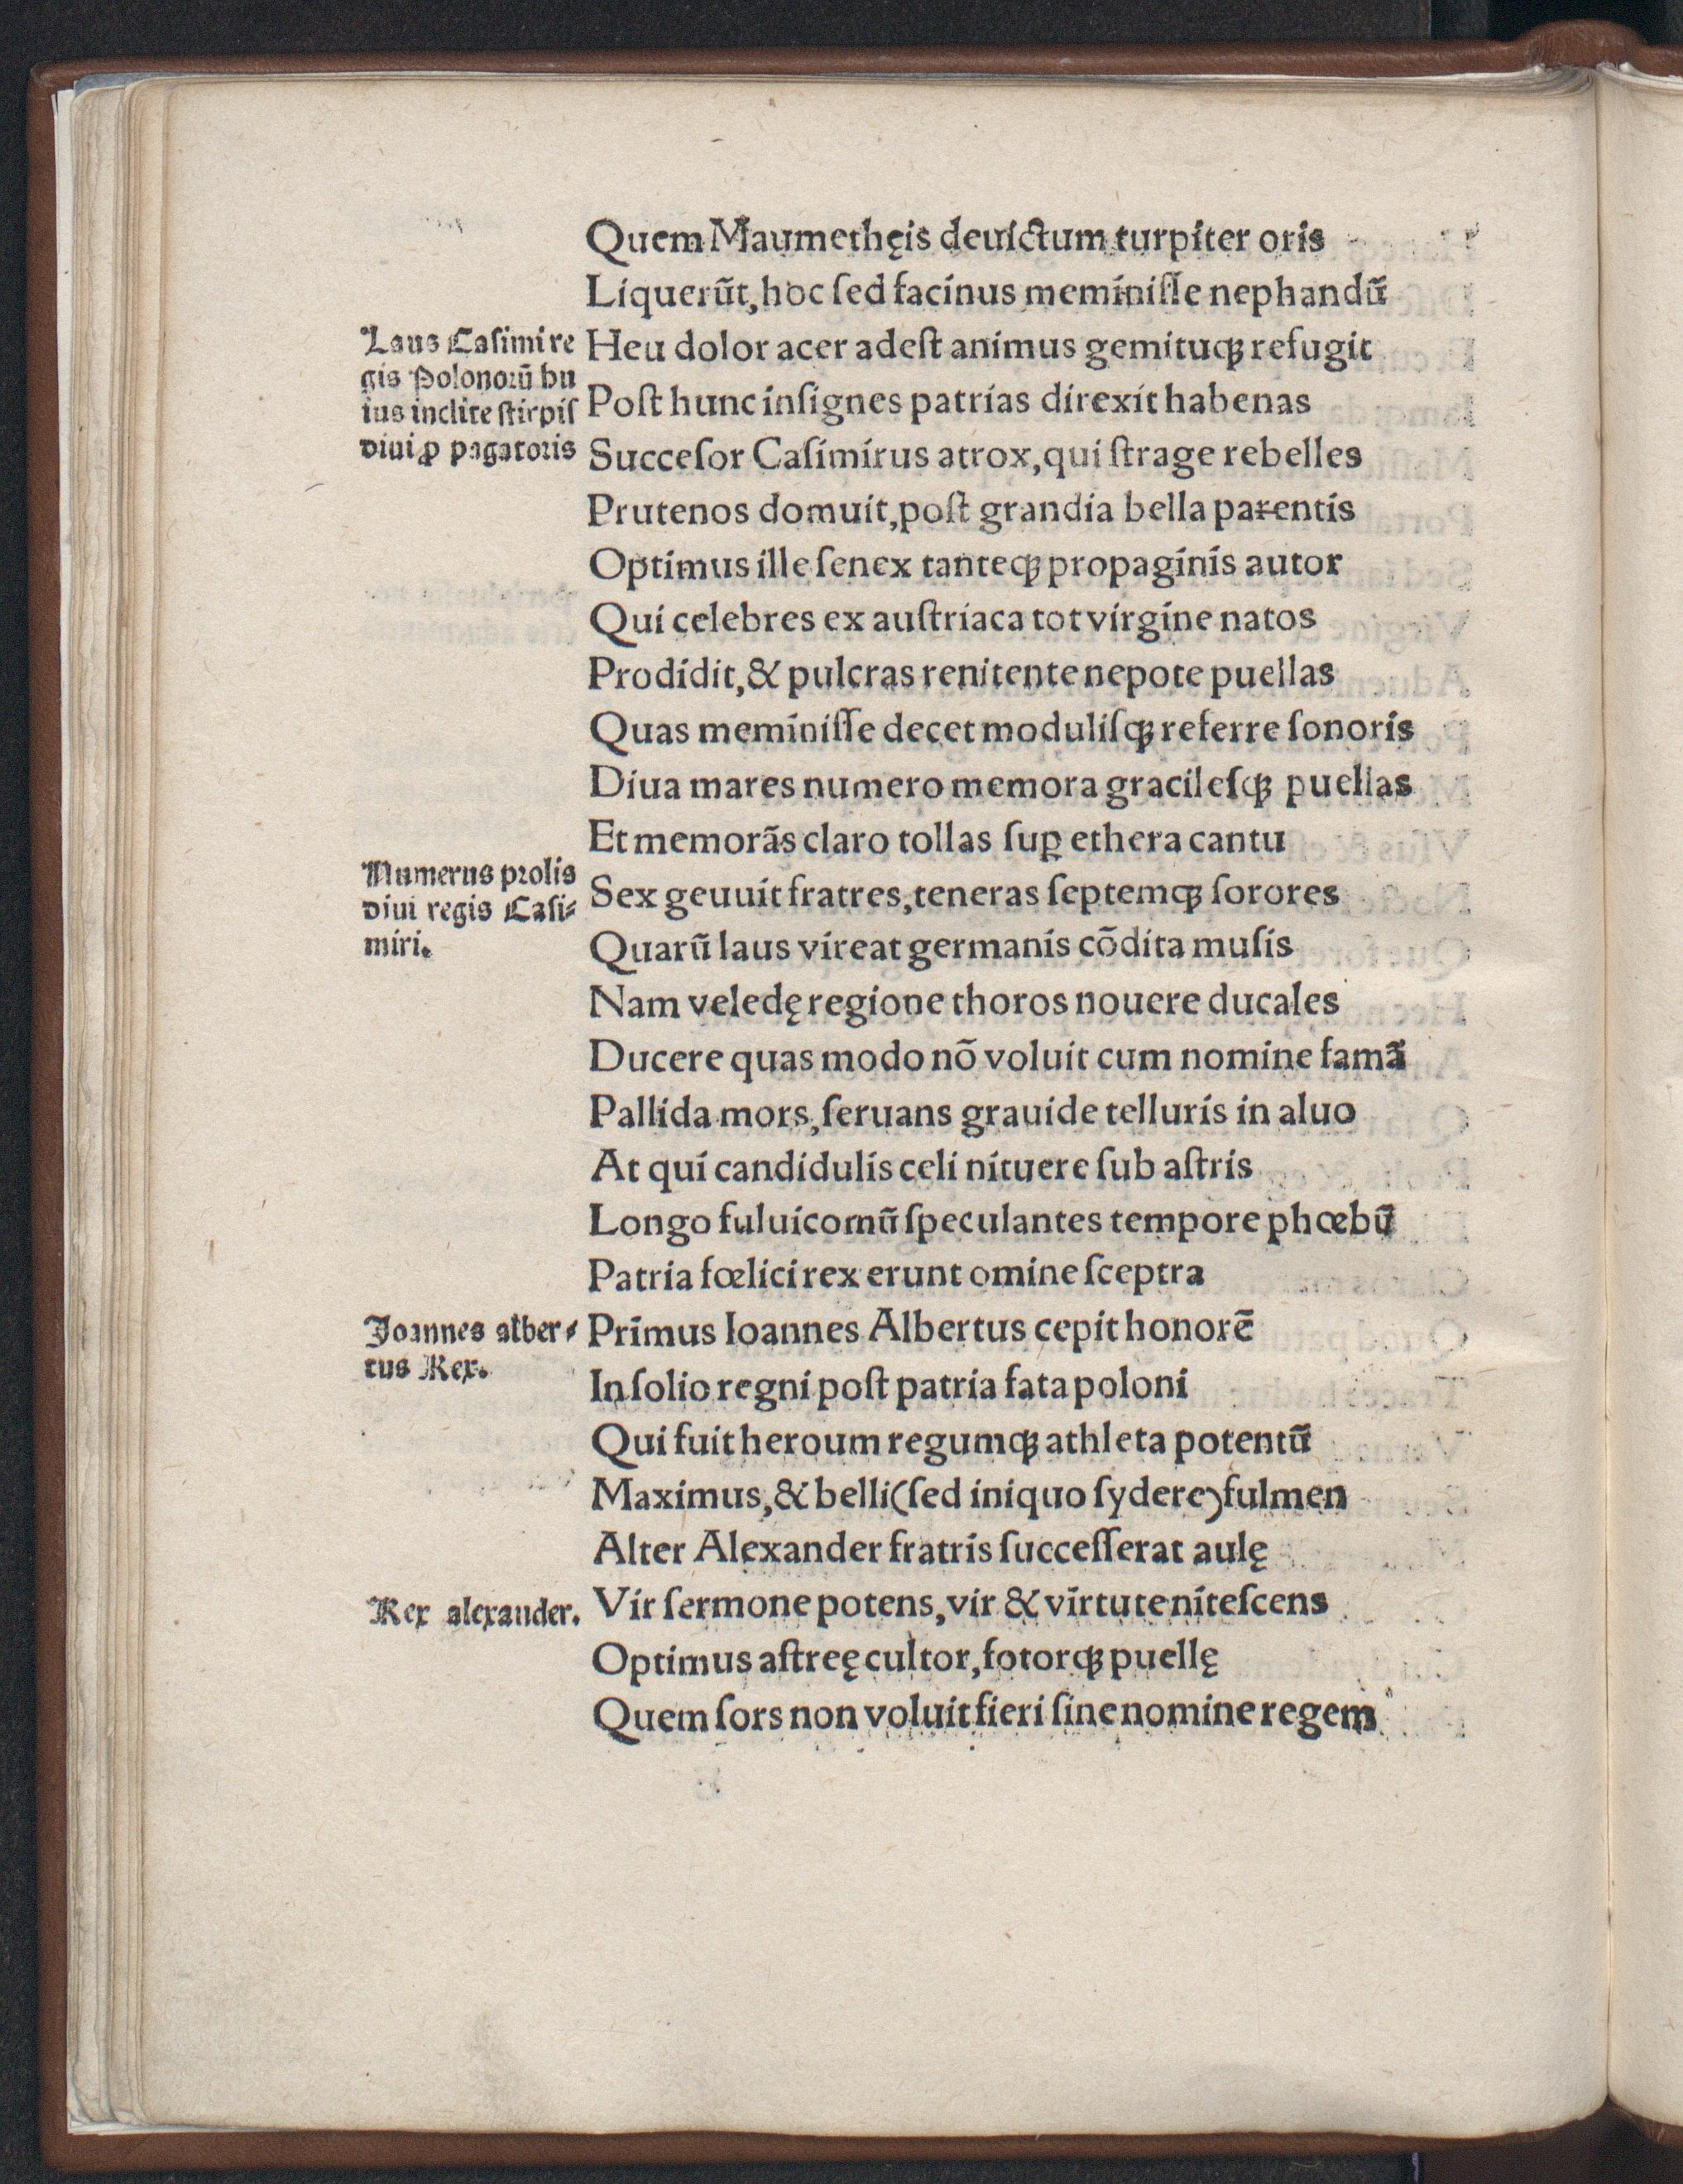 Quem Maumethęis deuictum turpiter oris
Liquerũt, hoc ſed facinus meminiſſe nephandũ
Laus Caſimi re
gis Polonorũ hu
ius inclite ſtirpiſ
diui ꝓ pagatoris
Heu dolor acer adeſt animus gemituqꝫ refugit
Poſt hunc inſignes patrias direxit habenas
Succeſor Caſimirus atrox, qui ſtrage rebelles
Prutenos domuit, poſt grandia bella parentis
Optimus ille ſenex tanteqꝫ propaginis autor
Qui celebres ex auſtriaca tot virgine natos
Prodidit, & pulcras renitente nepote puellas
Quas meminiſſe decet moduliſqꝫ referre ſonoris
Diua mares numero memora gracileſqꝫ puellas
Et memorãs claro tollas ſuꝑ ethera cantu
Numerus prolis
diui regis Caſi⸗
miri.
Sex geuuit fratres, teneras ſeptemqꝫ ſorores
Quarũ laus vireat germanis cõdita muſis
Nam veledę regione thoros nouere ducales
Ducere quas modo nõ voluit cum nomine famã
Pallida mors, ſeruans grauide telluris in aluo
At qui candidulis celi nituere ſub aſtris
Longo fuluicomũ ſpeculantes tempore phœbũ
Patria fœlici rex erunt omine ſceptra
Joannes alber⸗
tus Rex.
Primus Ioannes Albertus cepit honorẽ
In ſolio regni poſt patria fata poloni
Qui fuit heroum regumqꝫ athleta potentũ
Maximus, & belli (ſed iniquo ſydere) fulmen
Alter Alexander fratris ſucceſſerat aulę
Rex alexander.
Vir ſermone potens, vir & virtute niteſcens
Optimus aſtreę cultor, fotorqꝫ puellę
Quem ſors non voluit fieri ſine nomine regem